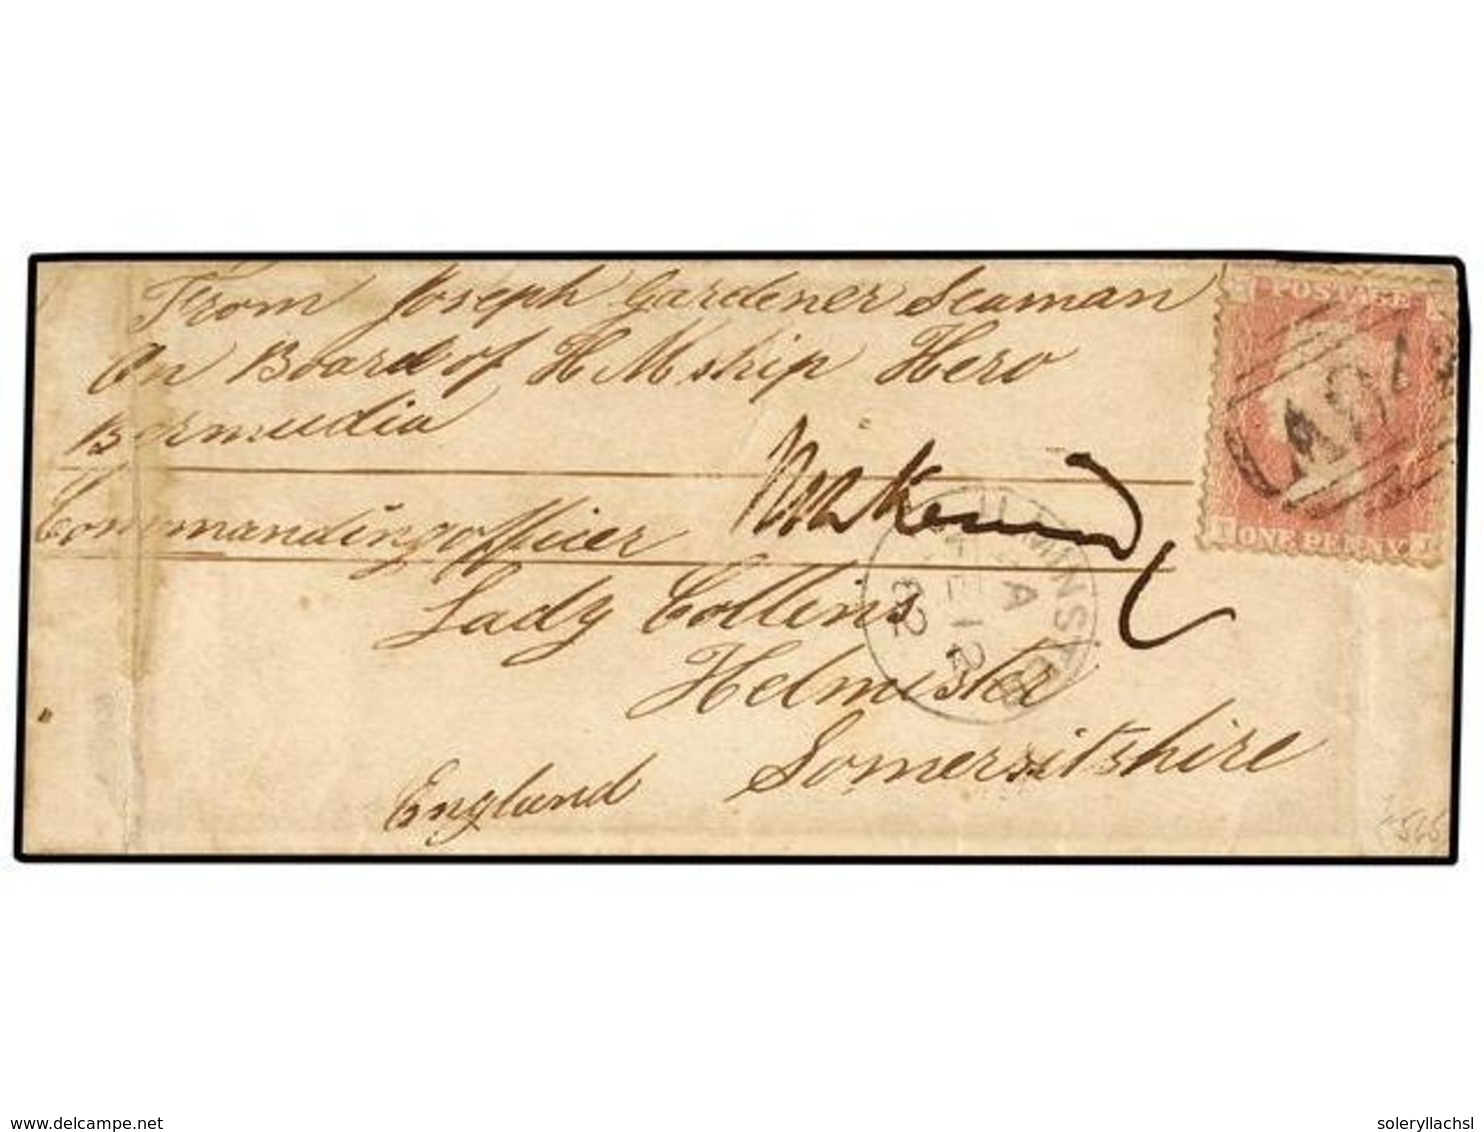 From Joseph Gardener Seaman
On Board of H M ship Hero
Bermudia
Commanding officer
Lady Collins
Helmister
Somersitshire
England
POSTAGE
A91
ONE PENNY
ILMINSTER
A
62
delcampe.net
soleryllachsl